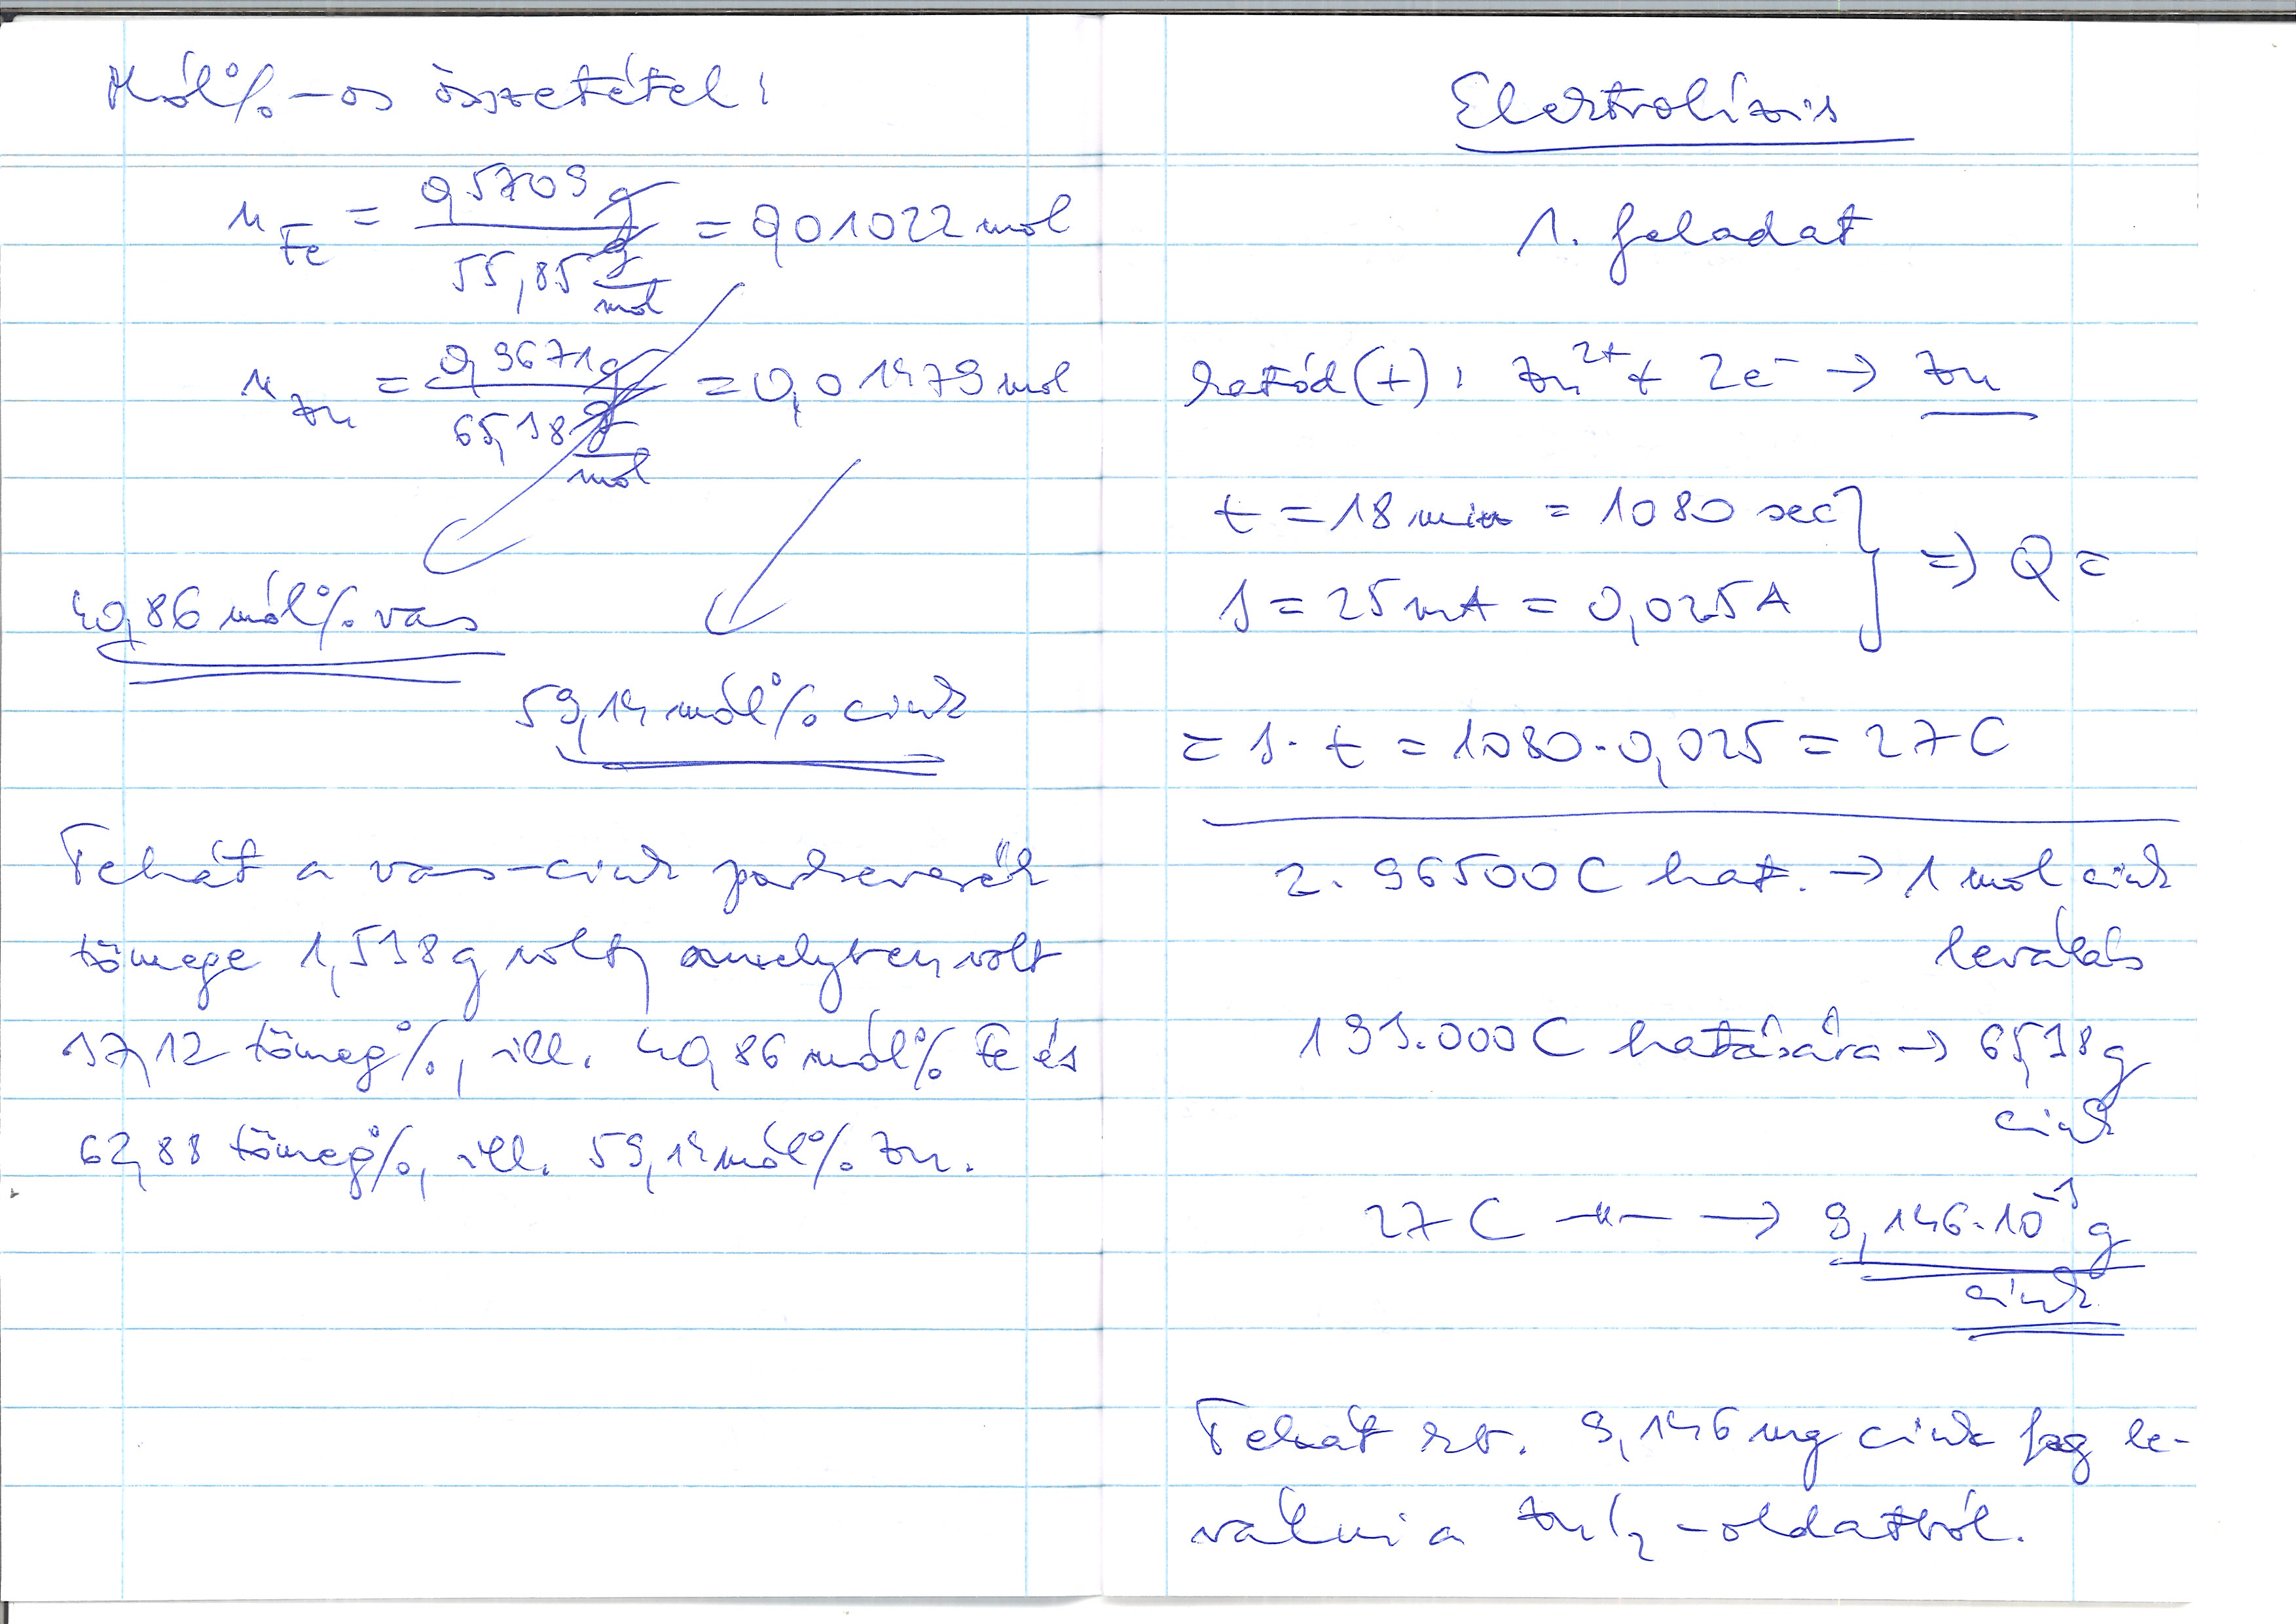 Mól%-os összetétel:
n Fe = 0,5709 g / 55,85 g/mol = 0,01022 mol
n Zn = 0,9671 g / 65,38 g/mol = 0,01479 mol
40,86 mól% vas
59,14 mól% cink
Tehát a vas-cink porkeverék
tömege 1,538 g volt, amelyben volt
37,12 tömeg%, ill. 40,86 mól% Fe és
62,88 tömeg%, ill. 59,14 mól% Zn.
Elektrolízis
1. feladat
katód(+): Zn²⁺ + 2e⁻ → Zn
t = 18 min = 1080 sec
I = 25 mA = 0,025 A } => Q =
= I · t = 1080 · 0,025 = 27 C
2 · 96500 C hat. → 1 mol cink
leválás
193.000 C hatására → 65,38 g
cink
27 C —"— → 9,146·10⁻³ g
cink
Tehát kb. 9,146 mg cink fog le-
válni a ZnI₂-oldatból.